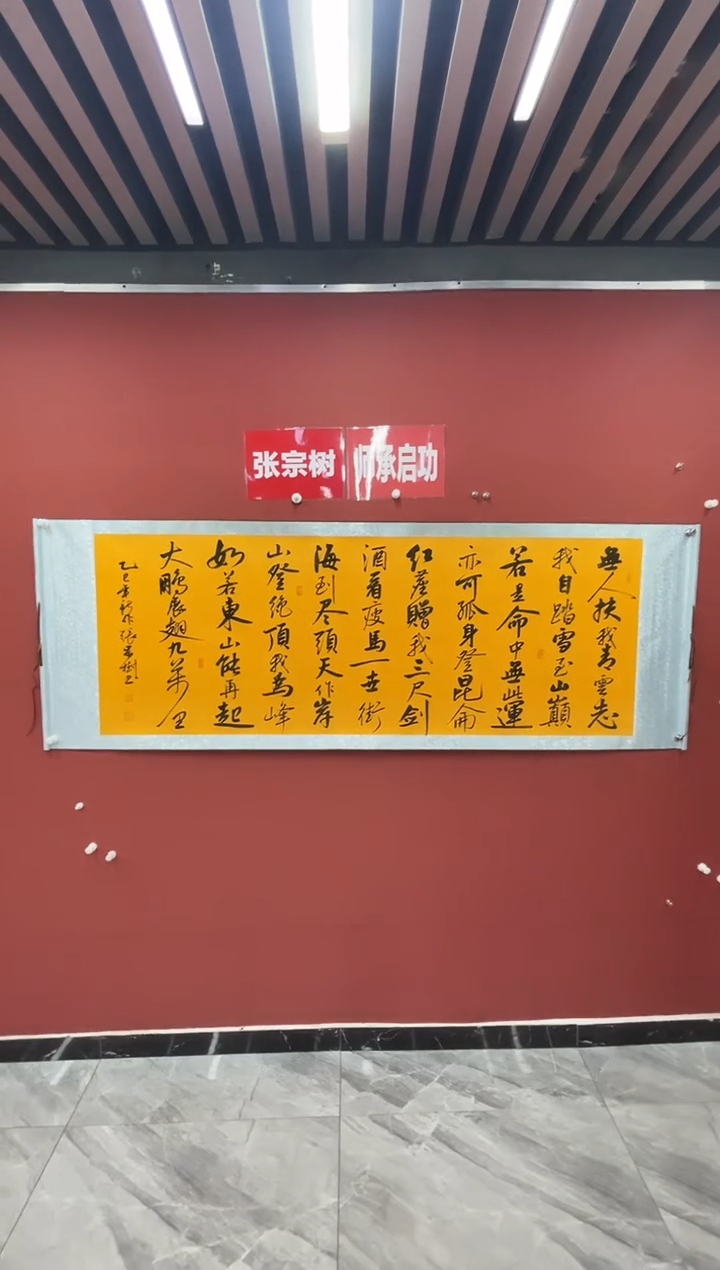 张宗树 师承启功
無人扶我青雲志
我自踏雪至山巔
若是命中無此運
亦可孤身登昆侖
红塵贈我三尺劍
酒看瘦馬一世街
海到尽頭天作岸
山登绝頂我為峰
如若東山能再起
大鵬展翅九萬里
乙巳年 张宗树